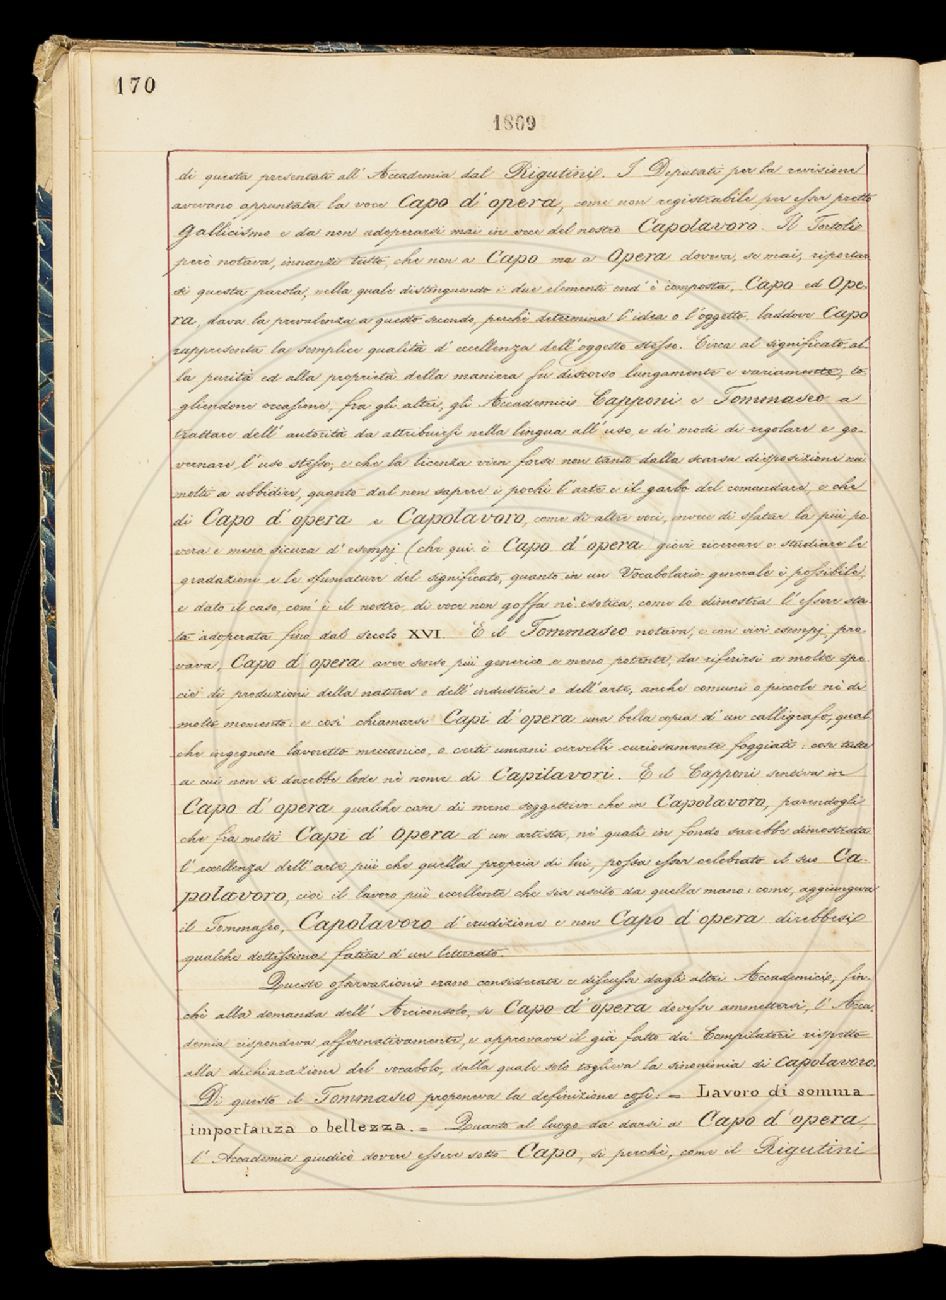 170
1869
di questa presentate all'Accademia dal Rigutini. I Deputati per la revisione
avevano appuntata la voce Capo d'opera, come non registrabile per esser pretto
Gallicismo e da non adoperarsi mai in vece del nostro Capolavoro. Il Tortoli
però notava, innanzi tutto, che non a Capo ma a Opera doveva, se mai, riportar-
si questa parola; nella quale distinguendo i due elementi ond'è composta, Capo ed Ope-
ra, dava la prevalenza a questo secondo, perchè determina l'idea o l'oggetto, laddove Capo
rappresenta la semplice qualità d'eccellenza dell'oggetto stesso. Circa al significato, al-
la purità ed alla proprietà della maniera fu discorso lungamente e variamente, to-
gliendone occasione, fra gli altri, gli Accademici Capponi e Tommaseo a
trattare dell'autorità da attribuirsi nella lingua all'uso, e di modi di regolare e go-
vernare l'uso stesso, e che la licenza vien forse non tanto dalla scarsa disposizione nei
molti a ubbidire, quanto dal non sapere i pochi l'arte e il garbo del comandare, e che
di Capo d'opera e Capolavoro, come di altre voci, invece di sfatar la più po-
vera e meno sicura d'esempj (che qui è Capo d'opera giovi ricercare e studiare le
gradazioni e le sfumature del significato, quanto in un Vocabolario generale è possibile,
e dato il caso, com'è il nostro, di voce non goffa nè esotica, come lo dimostra l'essere sta-
ta adoperata fino dal secolo XVI. E il Tommaseo notava, e con vivi esempj pro-
vava, Capo d'opera aver senso più generico e meno potente, da riferirsi a molte spe-
cie di produzioni della natura o dell'industria o dell'arte, anche comuni o piccole nè di
molto momento: e così chiamarsi Capi d'opera una bella copia d'un calligrafo, qual-
che ingegnoso lavoretto meccanico, o certi umani cervelli curiosamente foggiati: cose tutte
a cui non si darebbe lode nè nome di Capilavori. E il Capponi sentiva in
Capo d'opera qualche cosa di meno soggettivo che in Capolavoro, parendogli
che fra molti Capi d'Opera d'un artista, ne' quali in fondo sarebbe dimostrata
l'eccellenza dell'arte più che quella propria di lui, possa esser celebrato il suo Ca-
polavoro, cioè il lavoro più eccellente che sia uscito da quella mano: come, aggiungeva
il Tommaseo, Capolavoro d'erudizione e non Capo d'opera direbbesi
qualche dottissima fatica d'un letterato.
Queste osservazioni erano considerate e discusse dagli altri Accademici, fin-
chè alla domanda dell'Arciconsolo, se Capo d'opera dovesse ammettersi, l'Acca-
demia rispondeva affermativamente, e approvava il già fatto dai Compilatori rispetto
alla dichiarazione del vocabolo, dalla quale solo toglieva la sinonimia di Capolavoro.
Di questo il Tommaseo proponeva la definizione così: = Lavoro di somma
importanza o bellezza. = Quanto al luogo da darsi a Capo d'opera,
l'Accademia giudicò dovere essere sotto Capo, sì perchè, come il Rigutini